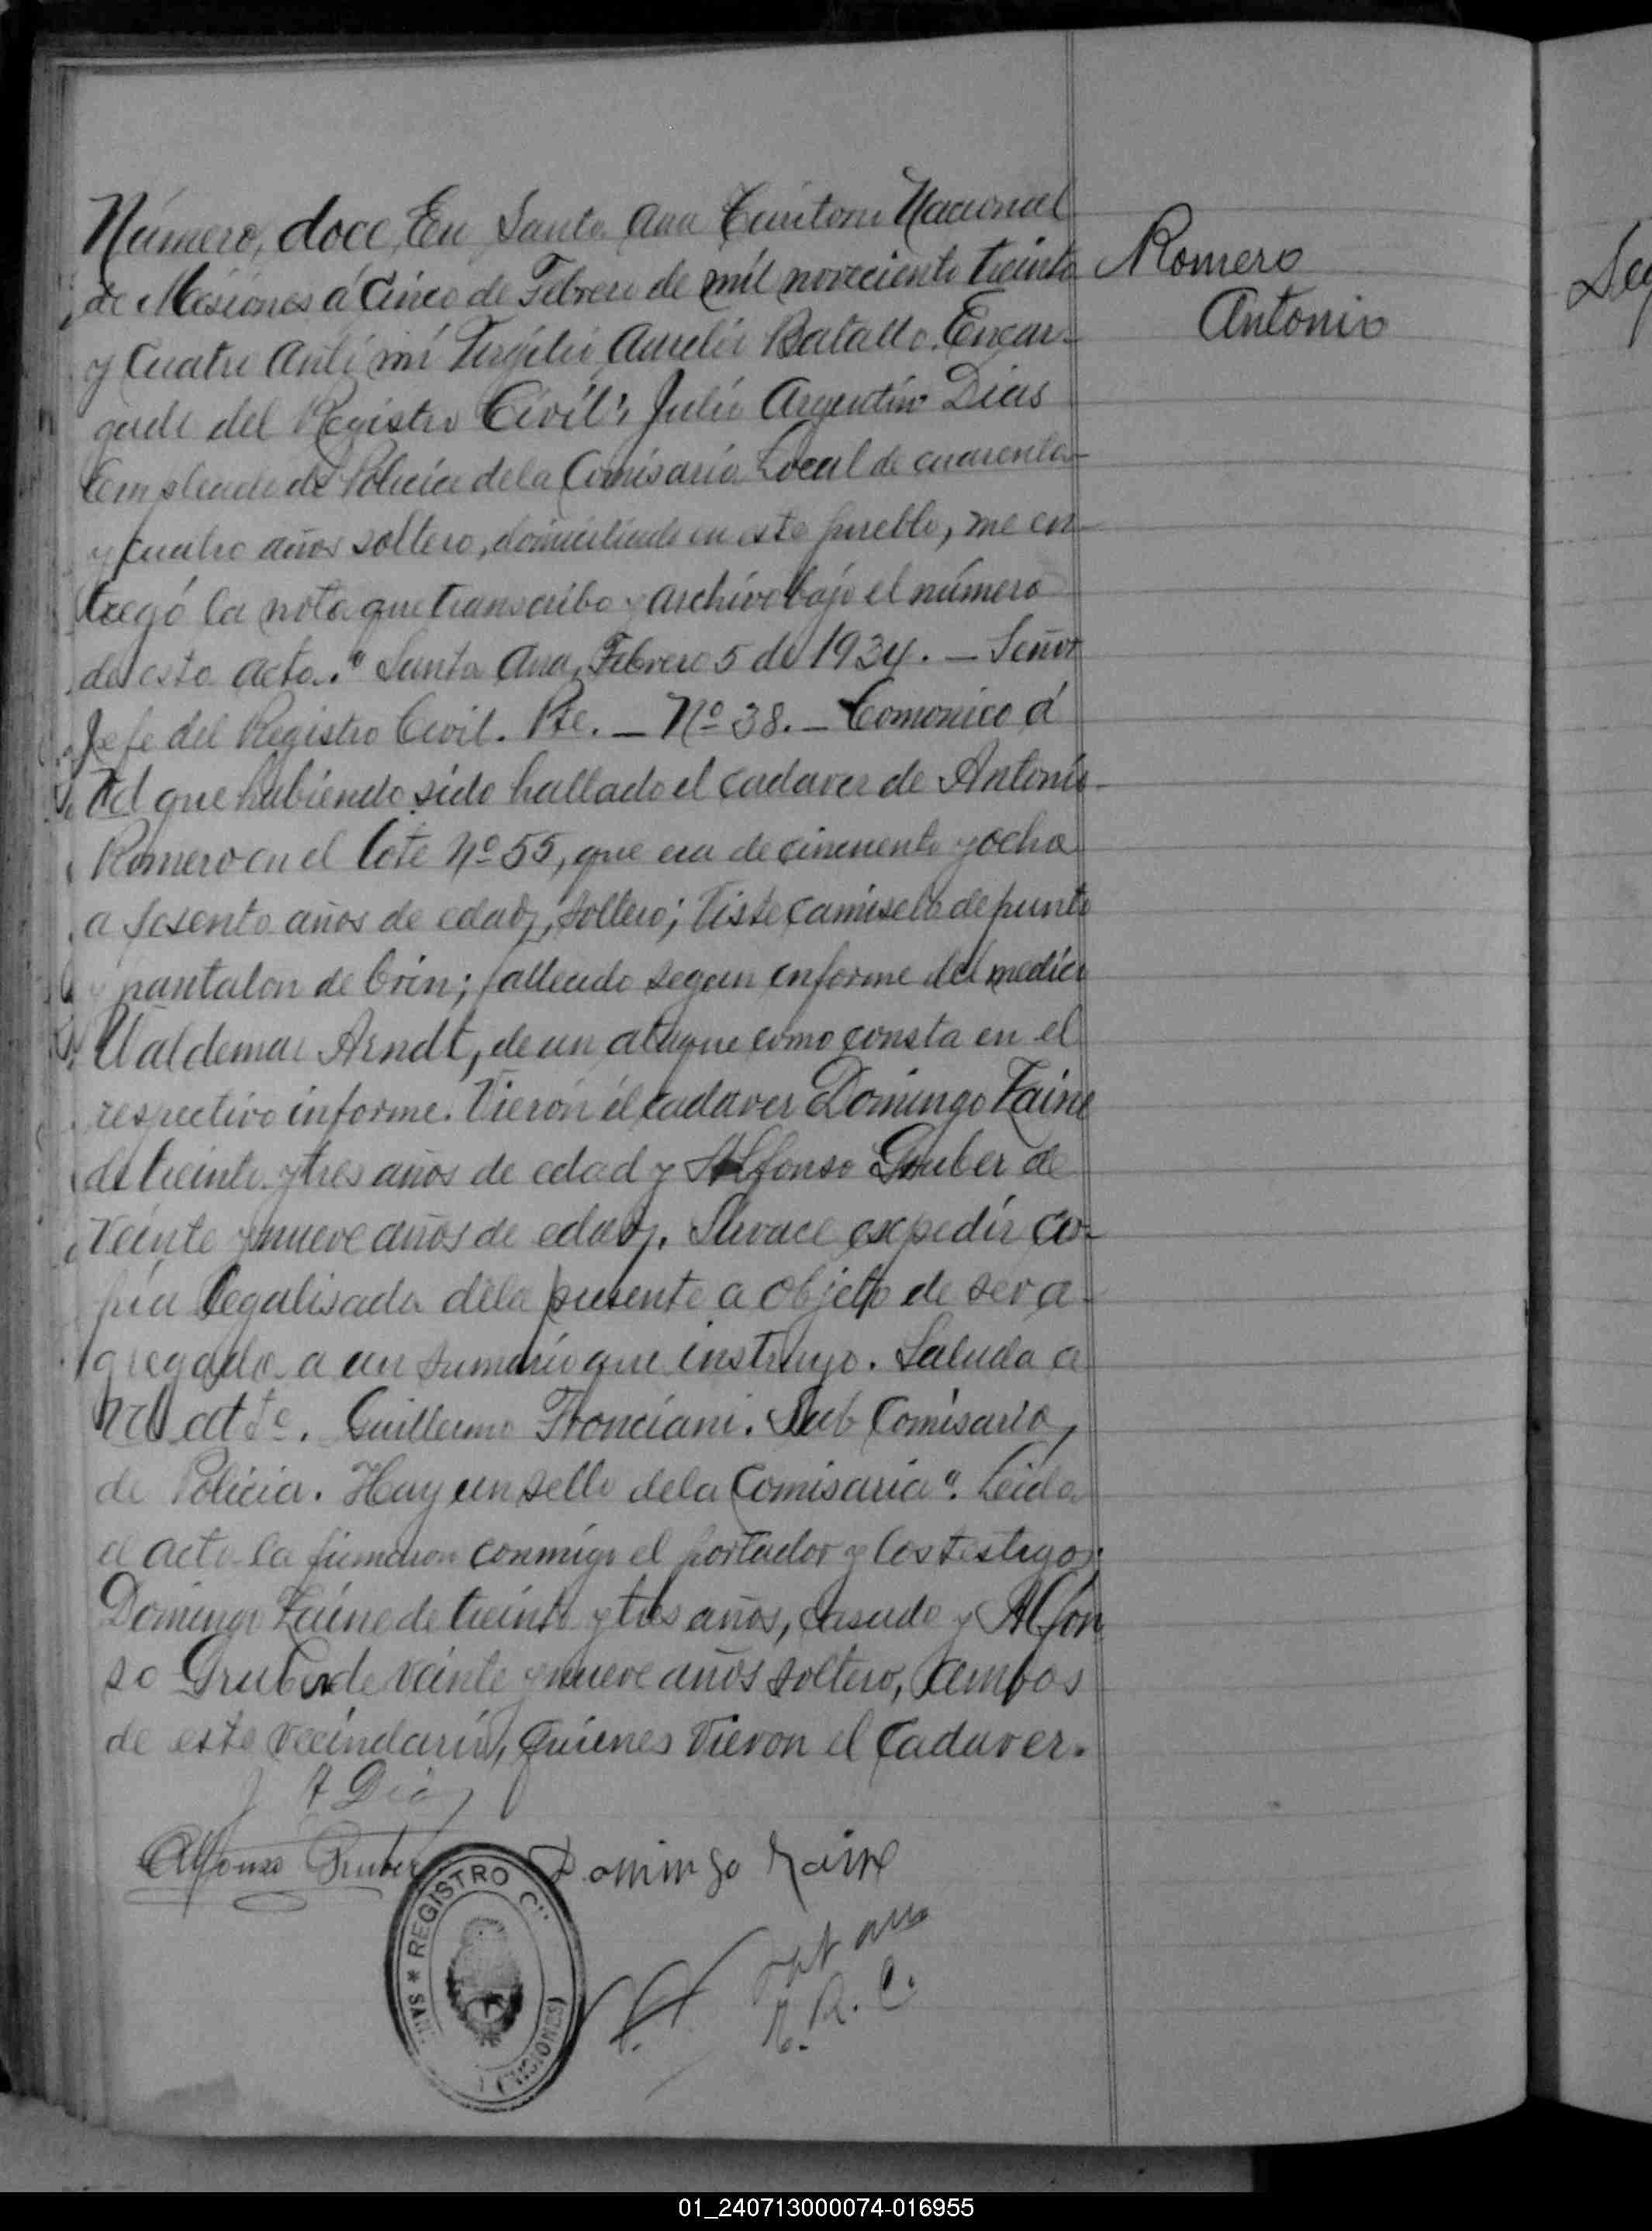 Número, doce, En Santa Ana Territorio Nacional
de Misiones á Cinco de Febrero de mil noveciento treinta
y Cuatro Anti mí Virgilio Aurelio Batallo. Encar-
gado del Registro Civil; Julio Argentino Dias
Empleado de Policia de la Comisaria Local de cuarenta
y cuatro años soltero, domiciliado en este pueblo, me en-
tregó la nota que transcribo y archivo bajo el número
de esta acta." Santa Ana, Febrero 5 de 1934. — Señor
Jefe del Registro Civil. Pte. — Nº 38. — Comonico á
Vd que habiendo sido hallado el cadaver de Antonio
Romero en el lote Nº 55, que era de cincuenta y ocho
a sesenta años de edad, soltero; Viste camiseta de punto
y pantalon de brin; fallecido segun informe del medico
Waldemar Arndt, de un ataque como consta en el
respectivo informe. Vieron él cadaver Domingo Zaine
de treinta y tres años de edad y Alfonso Gruber de
veinte y nueve años de edad. Sirvace expedir co-
pia legalisada dela presente a objeto de ser a-
gregado a un sumario que instruyo. Saluda a
Vd atte. Guillermo Fronciani. Sub Comisario,
de Policia. Hay un sello dela Comisaria". Leida
el acta la firmaron conmigo el portador y los testigos:
Domingo Zaine de treinta y tres años, casado y Alfon
so Gruber de veinte y nueve años soltero, ambos
de este vecindario, quienes vieron el cadaver.
J A Diaz
Alfonso Gruber
Domingo Zaine
REGISTRO
E. R. C.
Romero
Antonio
01_240713000074-016955